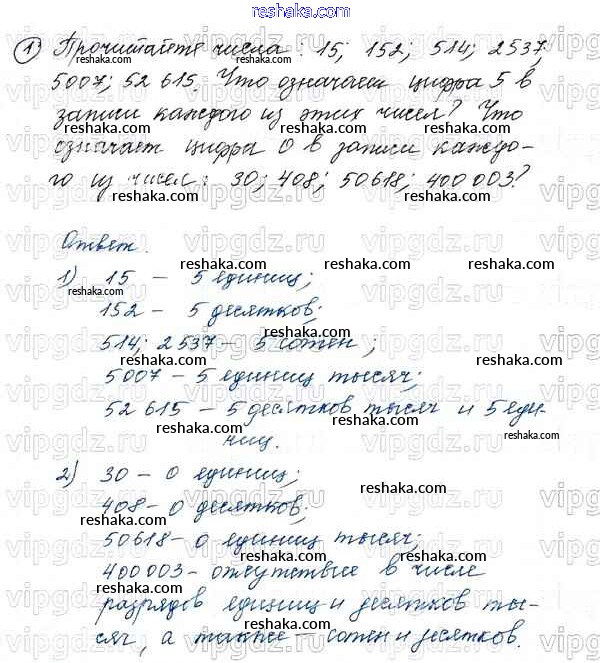 reshaka.com
① Прочитайте числа: 15; 152; 514; 2537;
5007; 52 615. Что означает цифра 5 в
записи каждого из этих чисел? Что
означает цифра 0 в записи каждо-
го из чисел: 30; 408; 50618; 400 003?
Ответ.
1) 15 – 5 единиц;
152 – 5 десятков;
514; 2537 – 5 сотен;
5007 – 5 единиц тысяч;
52 615 – 5 десятков тысяч и 5 еди-
ниц.
2) 30 – 0 единиц;
408 – 0 десятков;
50618 – 0 единиц тысяч;
400 003 – отсутствие в числе
разрядов единиц и десятков ты-
сяч, а также – сотен и десятков.